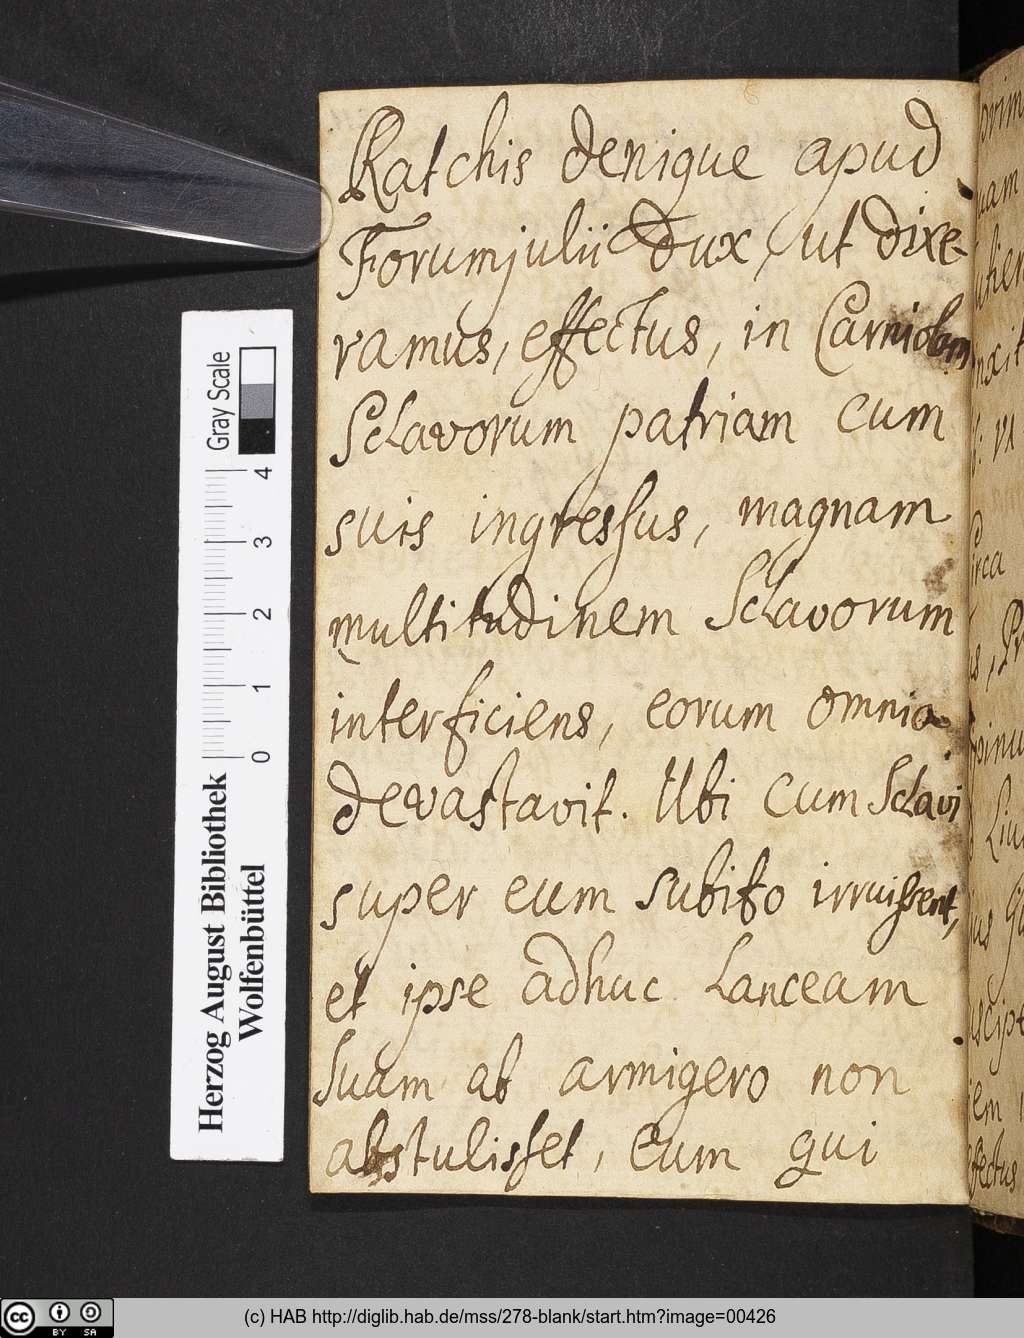 Ratchis denique apud
Forumjulii Dux, ut dixe-
ramus, effectus, in Carniolam
Sclavorum patriam cum
suis ingressus, magnam
multitudinem Sclavorum
interficiens, eorum omnia
devastavit. Ubi cum Sclavi
super eum subito irruissent,
et ipse adhuc Lanceam
suam ab armigero non
abstulisset, eum qui
Gray Scale
0 1 2 3 4
Herzog August Bibliothek
Wolfenbüttel
uam
irca
effectus
cc BY SA
(c) HAB http://diglib.hab.de/mss/278-blank/start.htm?image=00426